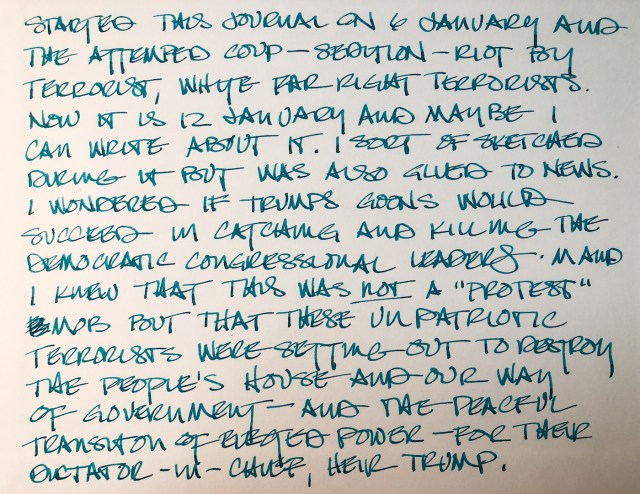 STARTED THIS JOURNAL ON 6 JANUARY AND
THE ATTEMPED COUP - SEDITION - RIOT BY
TERRORIST, WHITE FAR RIGHT TERRORISTS.
NOW IT IS 12 JANUARY AND MAYBE I
CAN WRITE ABOUT IT. I SORT OF SKETCHED
DURING IT BUT WAS ALSO GLUED TO NEWS.
I WONDERED IF TRUMPS GOONS WOULD
SUCCEED IN CATCHING AND KILLING THE
DEMOCRATIC CONGRESSIONAL LEADERS. M AND
I KNEW THAT THIS WAS NOT A "PROTEST"
MOB BUT THAT THESE UNPATRIOTIC
TERRORISTS WERE SETTING OUT TO DESTROY
THE PEOPLE'S HOUSE AND OUR WAY
OF GOVERNMENT - AND THE PEACEFUL
TRANSITON OF ELECTED POWER - FOR THEIR
DICTATOR - IN - CHIEF, HEIR TRUMP.